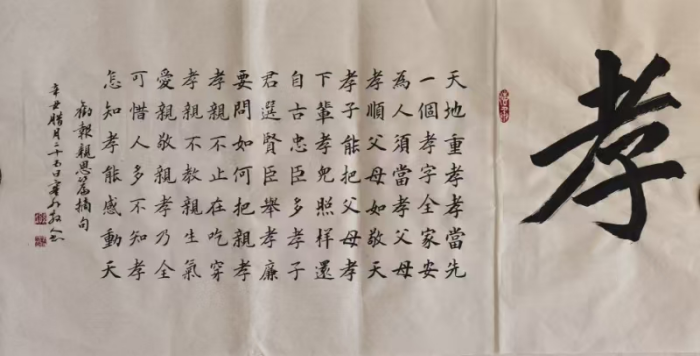 孝
天地重孝孝當先
一個孝字全家安
為人須當孝父母
孝順父母如敬天
孝子能把父母孝
下輩孝兒照樣還
自古忠臣多孝子
君選賢臣舉孝廉
要問如何把親孝
孝親不止在吃穿
孝親不教親生氣
愛親敬親孝乃全
可惜人多不知孝
怎知孝能感動天
報親恩篇摘句
辛丑腊月二十五日